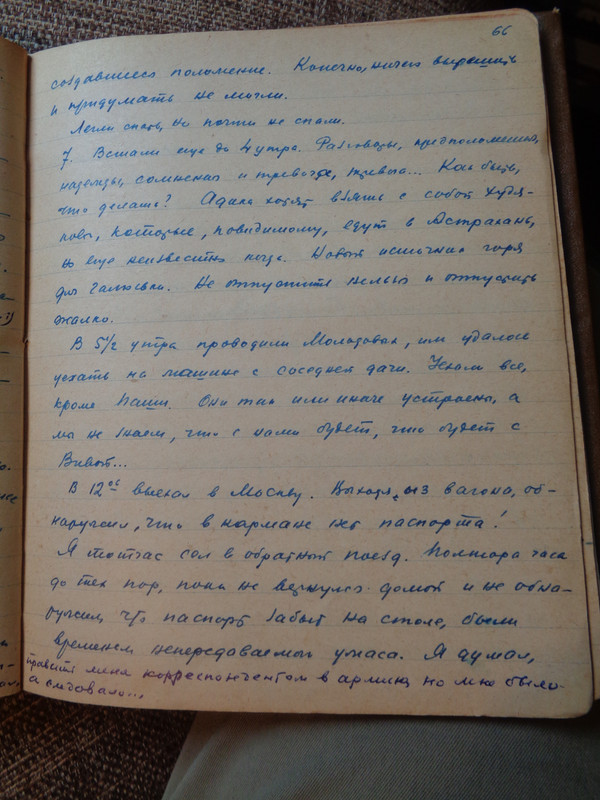 66
создавшееся положение. Конечно, ничего вырешить
и придумать не могли.
Легли спать, но почти не спали.
7. Встали еще до 4 утра. Разговоры, предположения,
надежды, сомнения и тревоги, тревога... Как быть,
что делать? Адама хотят взять с собой Худя-
ковы, которые, повидимому, едут в Астрахань,
но еще неизвестно когда. Новый источник горя
для Галюськи. Не отпустить нельзя и отпустить
жалко.
В 5 1/2 утра проводили Молодовых, им удалось
уехать на машине с соседней дачи. Уехали все,
кроме Паши. Они так или иначе устроены, а
мы не знаем, что с нами будет, что будет с
Вивот...
В 12 06 выехал в Москву. Выходя из вагона, об-
наружил, что в кармане нет паспорта!
Я тотчас сел в обратный поезд. Полтора часа
до тех пор, пока не вернулся домой и не обна-
ружил, что паспорт забыт на столе, были
временем непередаваемого ужаса. Я думал,
править меня корреспондентом в армию, но мне было-
а следовало...